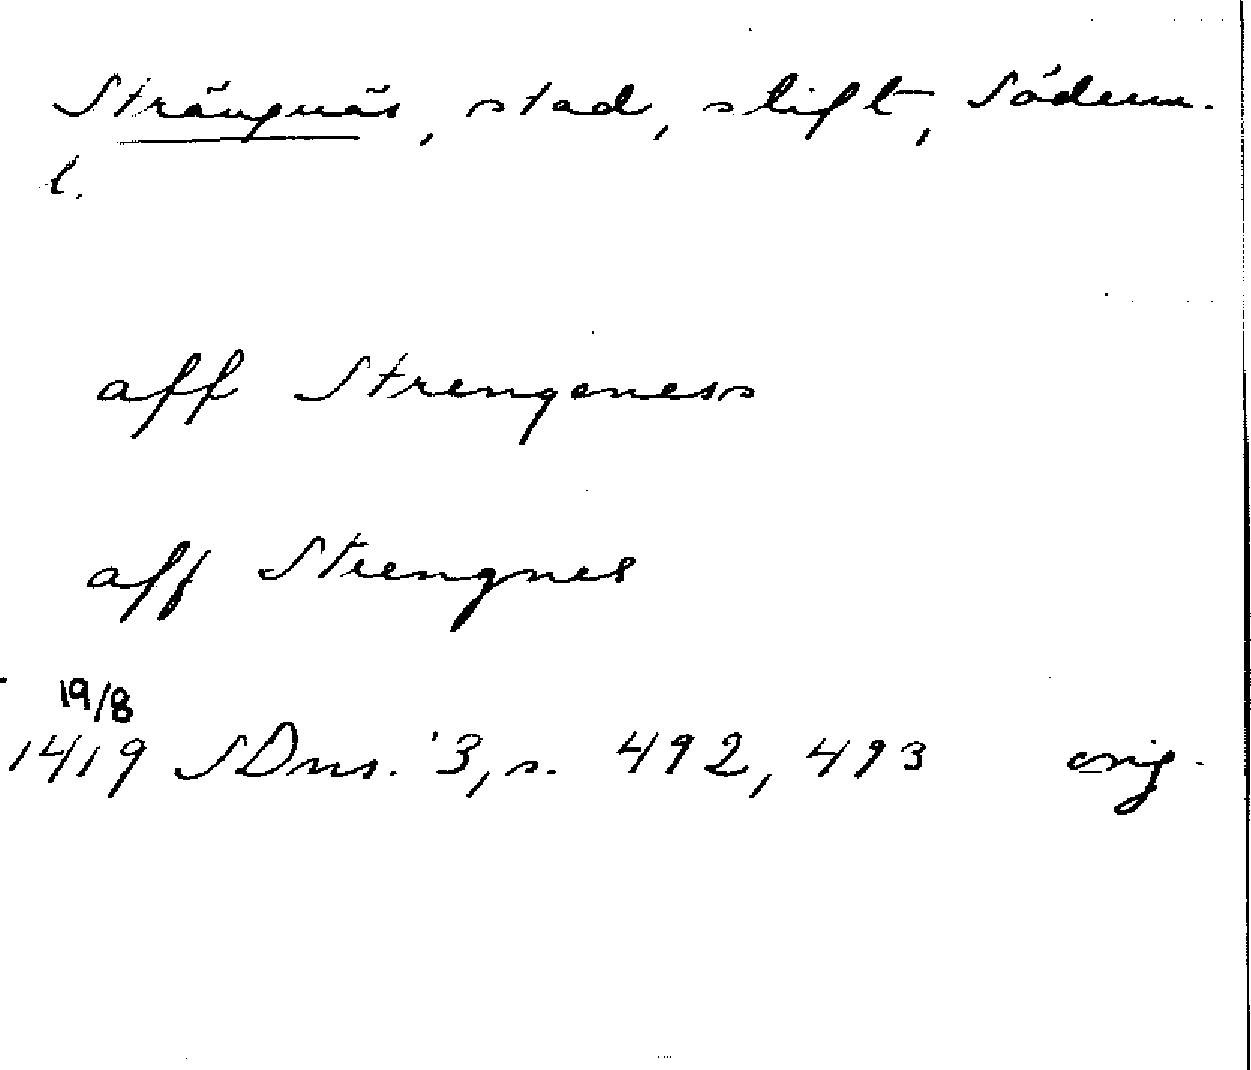 Strängnäs, stad, stift, Söderm.
l.
aff Strengeness
aff Strengnes
19/8
1419 SDns. 3, s. 492, 493 orig.